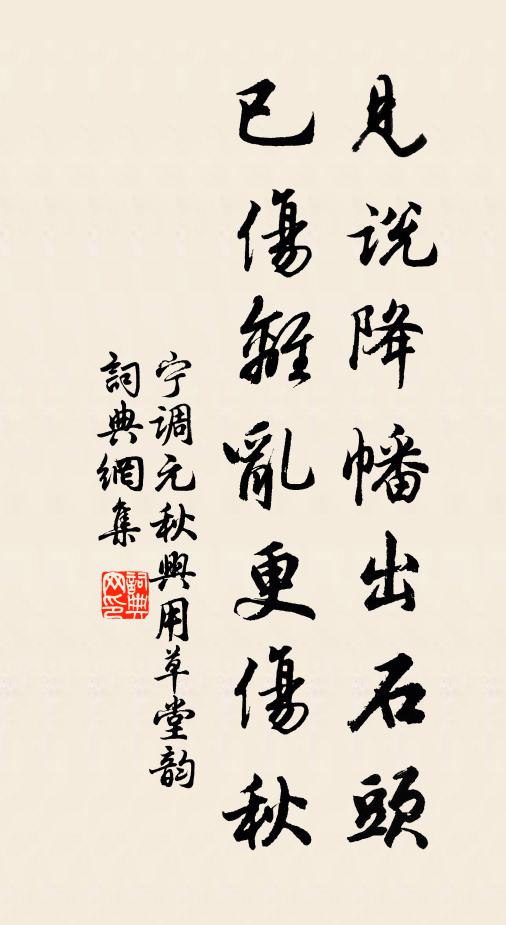 見説降幡出石頭
已傷離亂更傷秋
宁調元秋興用草堂韵
詞典網集
詞典網印